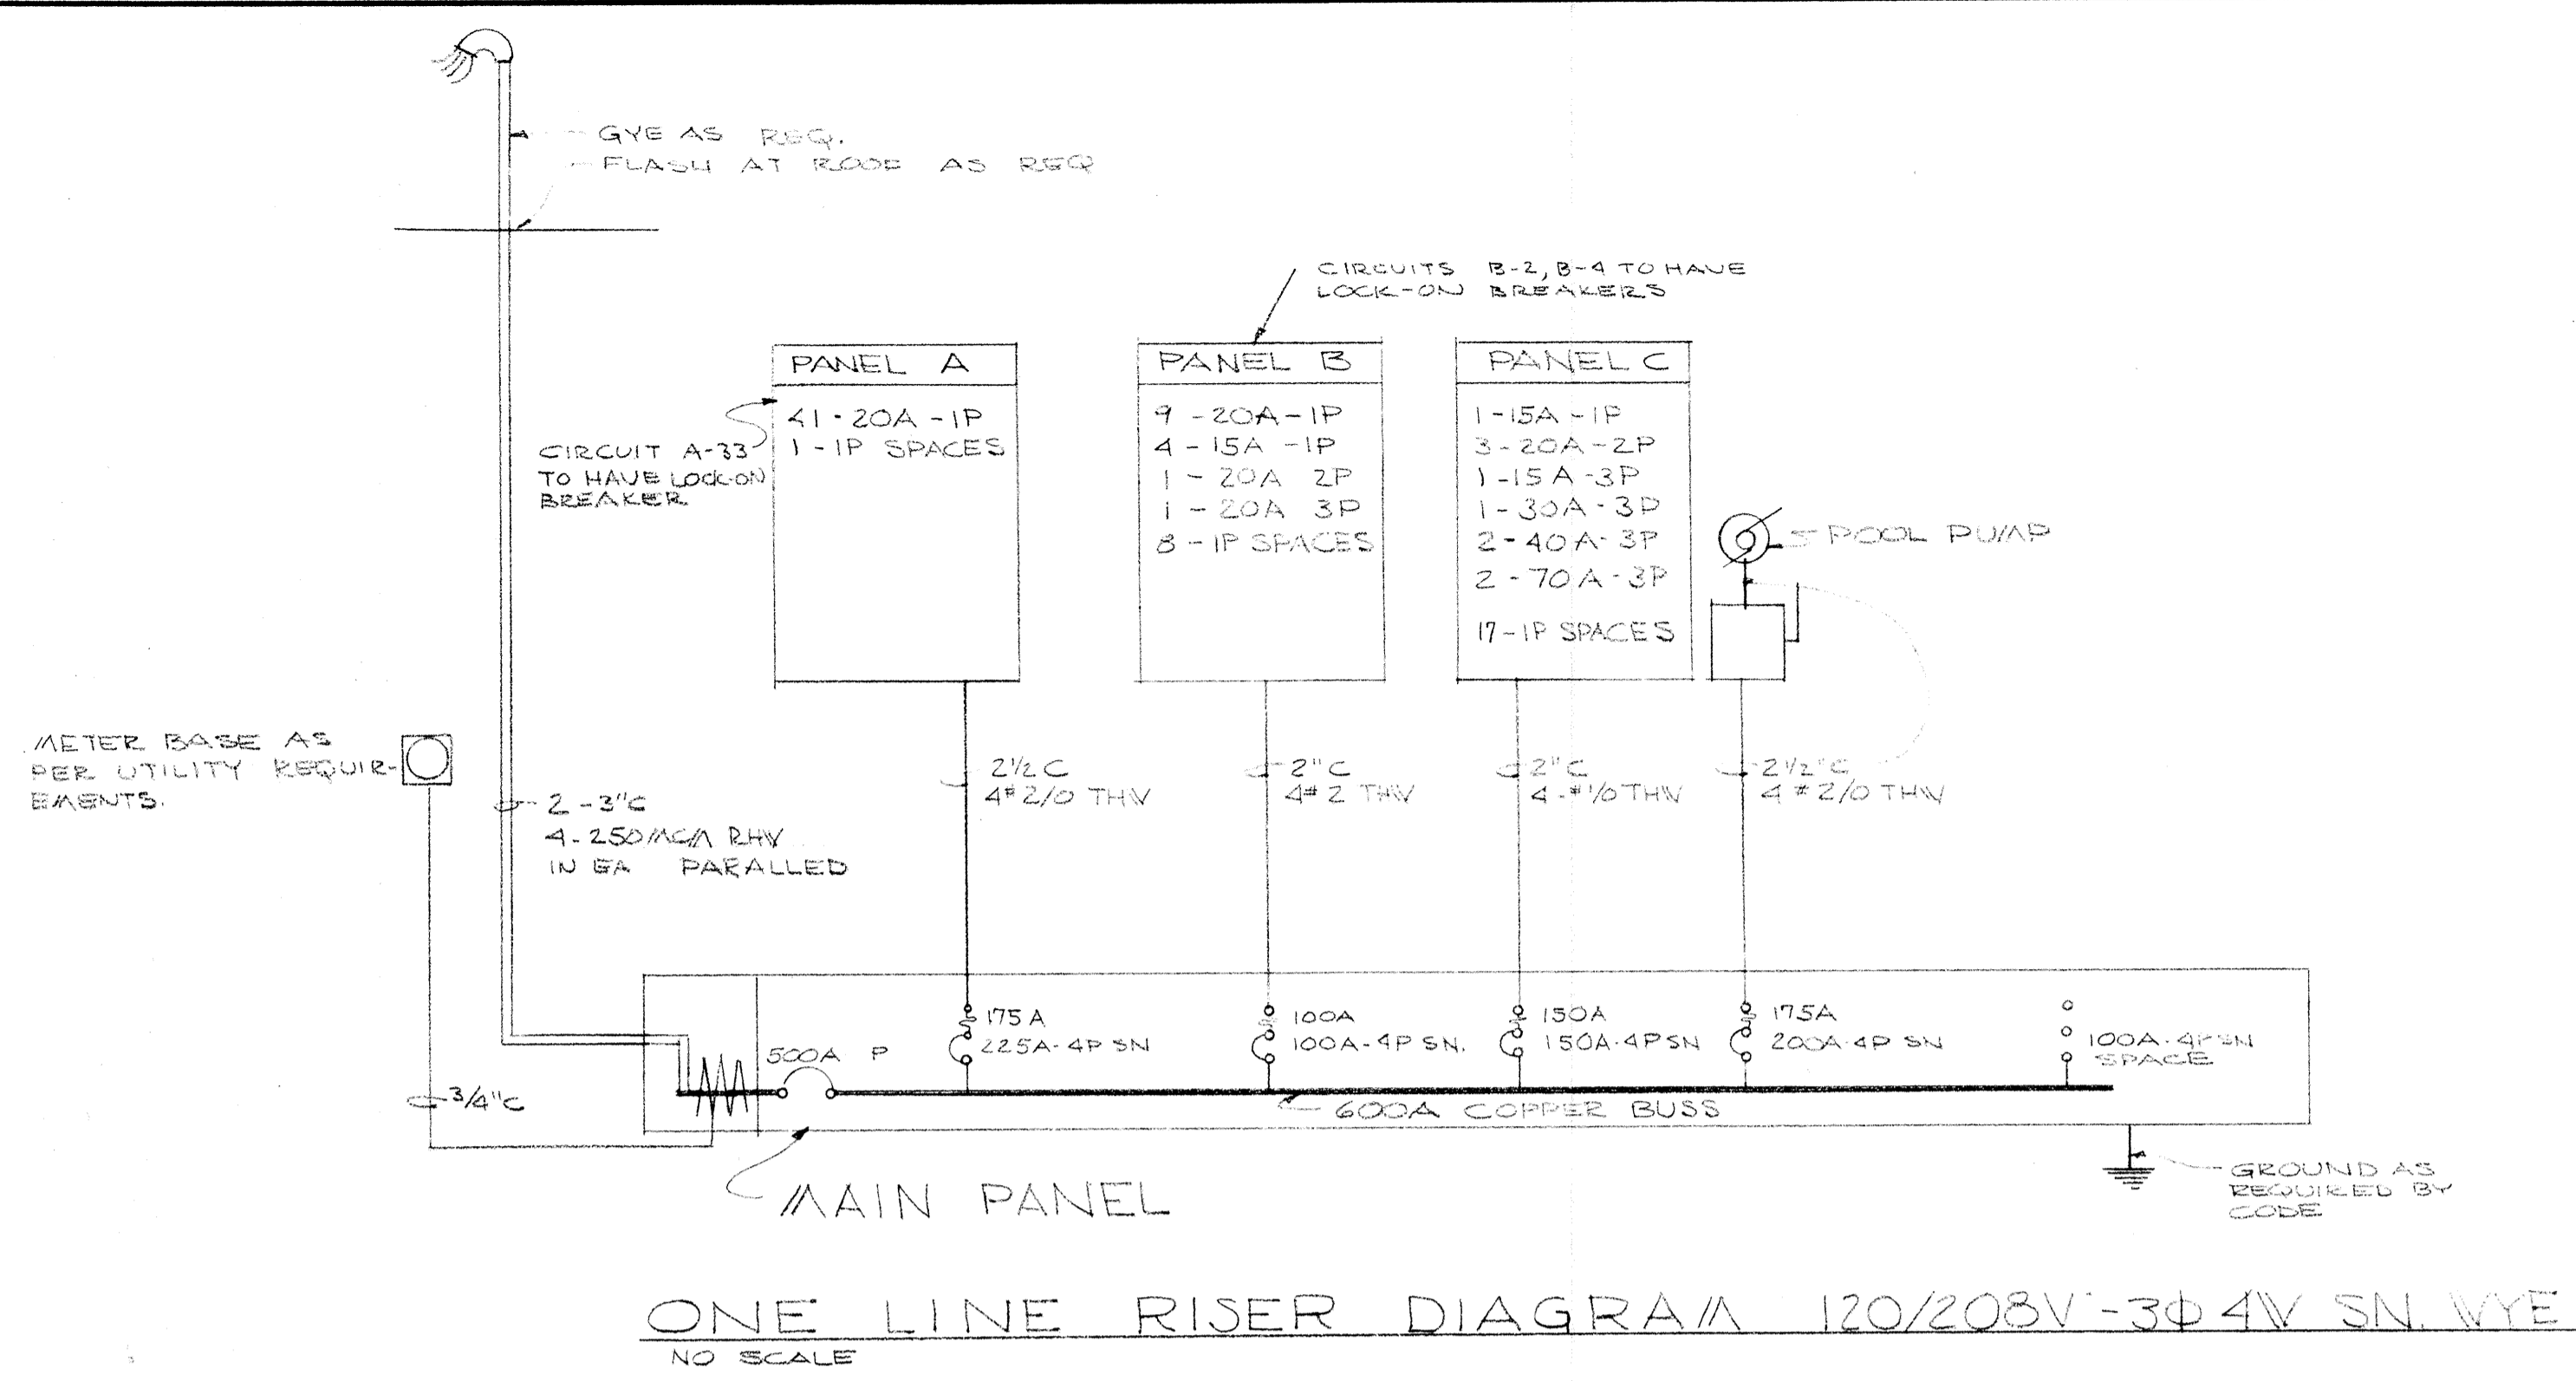 GYE AS REQ.
FLASH AT ROOF AS REQ
CIRCUITS B-2, B-4 TO HAVE
LOCK-ON BREAKERS
PANEL A
41 - 20A - 1P
1 - 1P SPACES
CIRCUIT A-33
TO HAVE LOCK-ON
BREAKER
PANEL B
9 - 20A - 1P
4 - 15A - 1P
1 - 20A 2P
1 - 20A 3P
8 - 1P SPACES
PANEL C
1 - 15A - 1P
3 - 20A - 2P
1 - 15A - 3P
1 - 30A - 3P
2 - 40A - 3P
2 - 70A - 3P
17 - 1P SPACES
POOL PUMP
METER BASE AS
PER UTILITY REQUIR-
EMENTS.
2 - 3"C
4 - 250 MCM RHW
IN EA PARALLED
2 1/2 C
4# 2/0 THW
2"C
4# 2 THW
2"C
4 - # 1/0 THW
2 1/2"C
4 # 2/0 THW
3/4"C
500A P
175A
225A - 4P SN
100A
100A - 4P SN.
150A
150A - 4P SN
175A
200A 4P SN
100A - 4P SN
SPACE
600A COPPER BUSS
MAIN PANEL
GROUND AS
REQUIRED BY
CODE
ONE LINE RISER DIAGRAM 120/208V - 3Φ 4W SN. WYE
NO SCALE